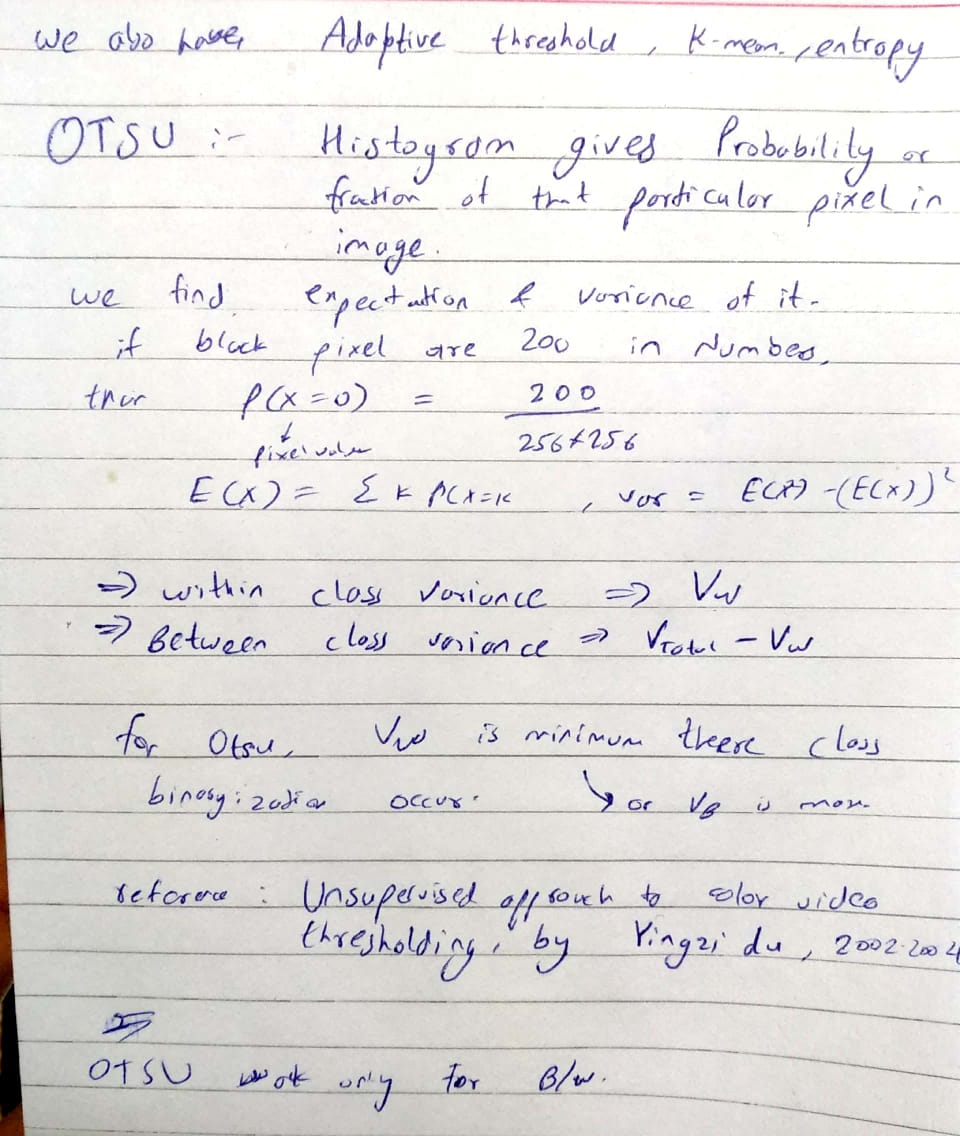 we also have, Adaptive threshold, K-mean, entropy
OTSU :- Histogram gives Probability or
fraction of that particular pixel in
image.
we find expectation & variance of it.
if black pixel are 200 in Number,
then P(X=0) = 200 / 256*256
↓
pixel value
E(X) = Σ k P(X=k , var = E(X²) - (E(X))²
⇒ within class variance ⇒ Vw
⇒ Between class variance ⇒ VTotal - Vw
for Otsu, Vw is minimum there class
binaryization occur. ↳ or VB is max.
reference : Unsupervised approach to color video
thresholding, by Yingzi du, 2002-2004
⇒
OTSU work only for B/w.